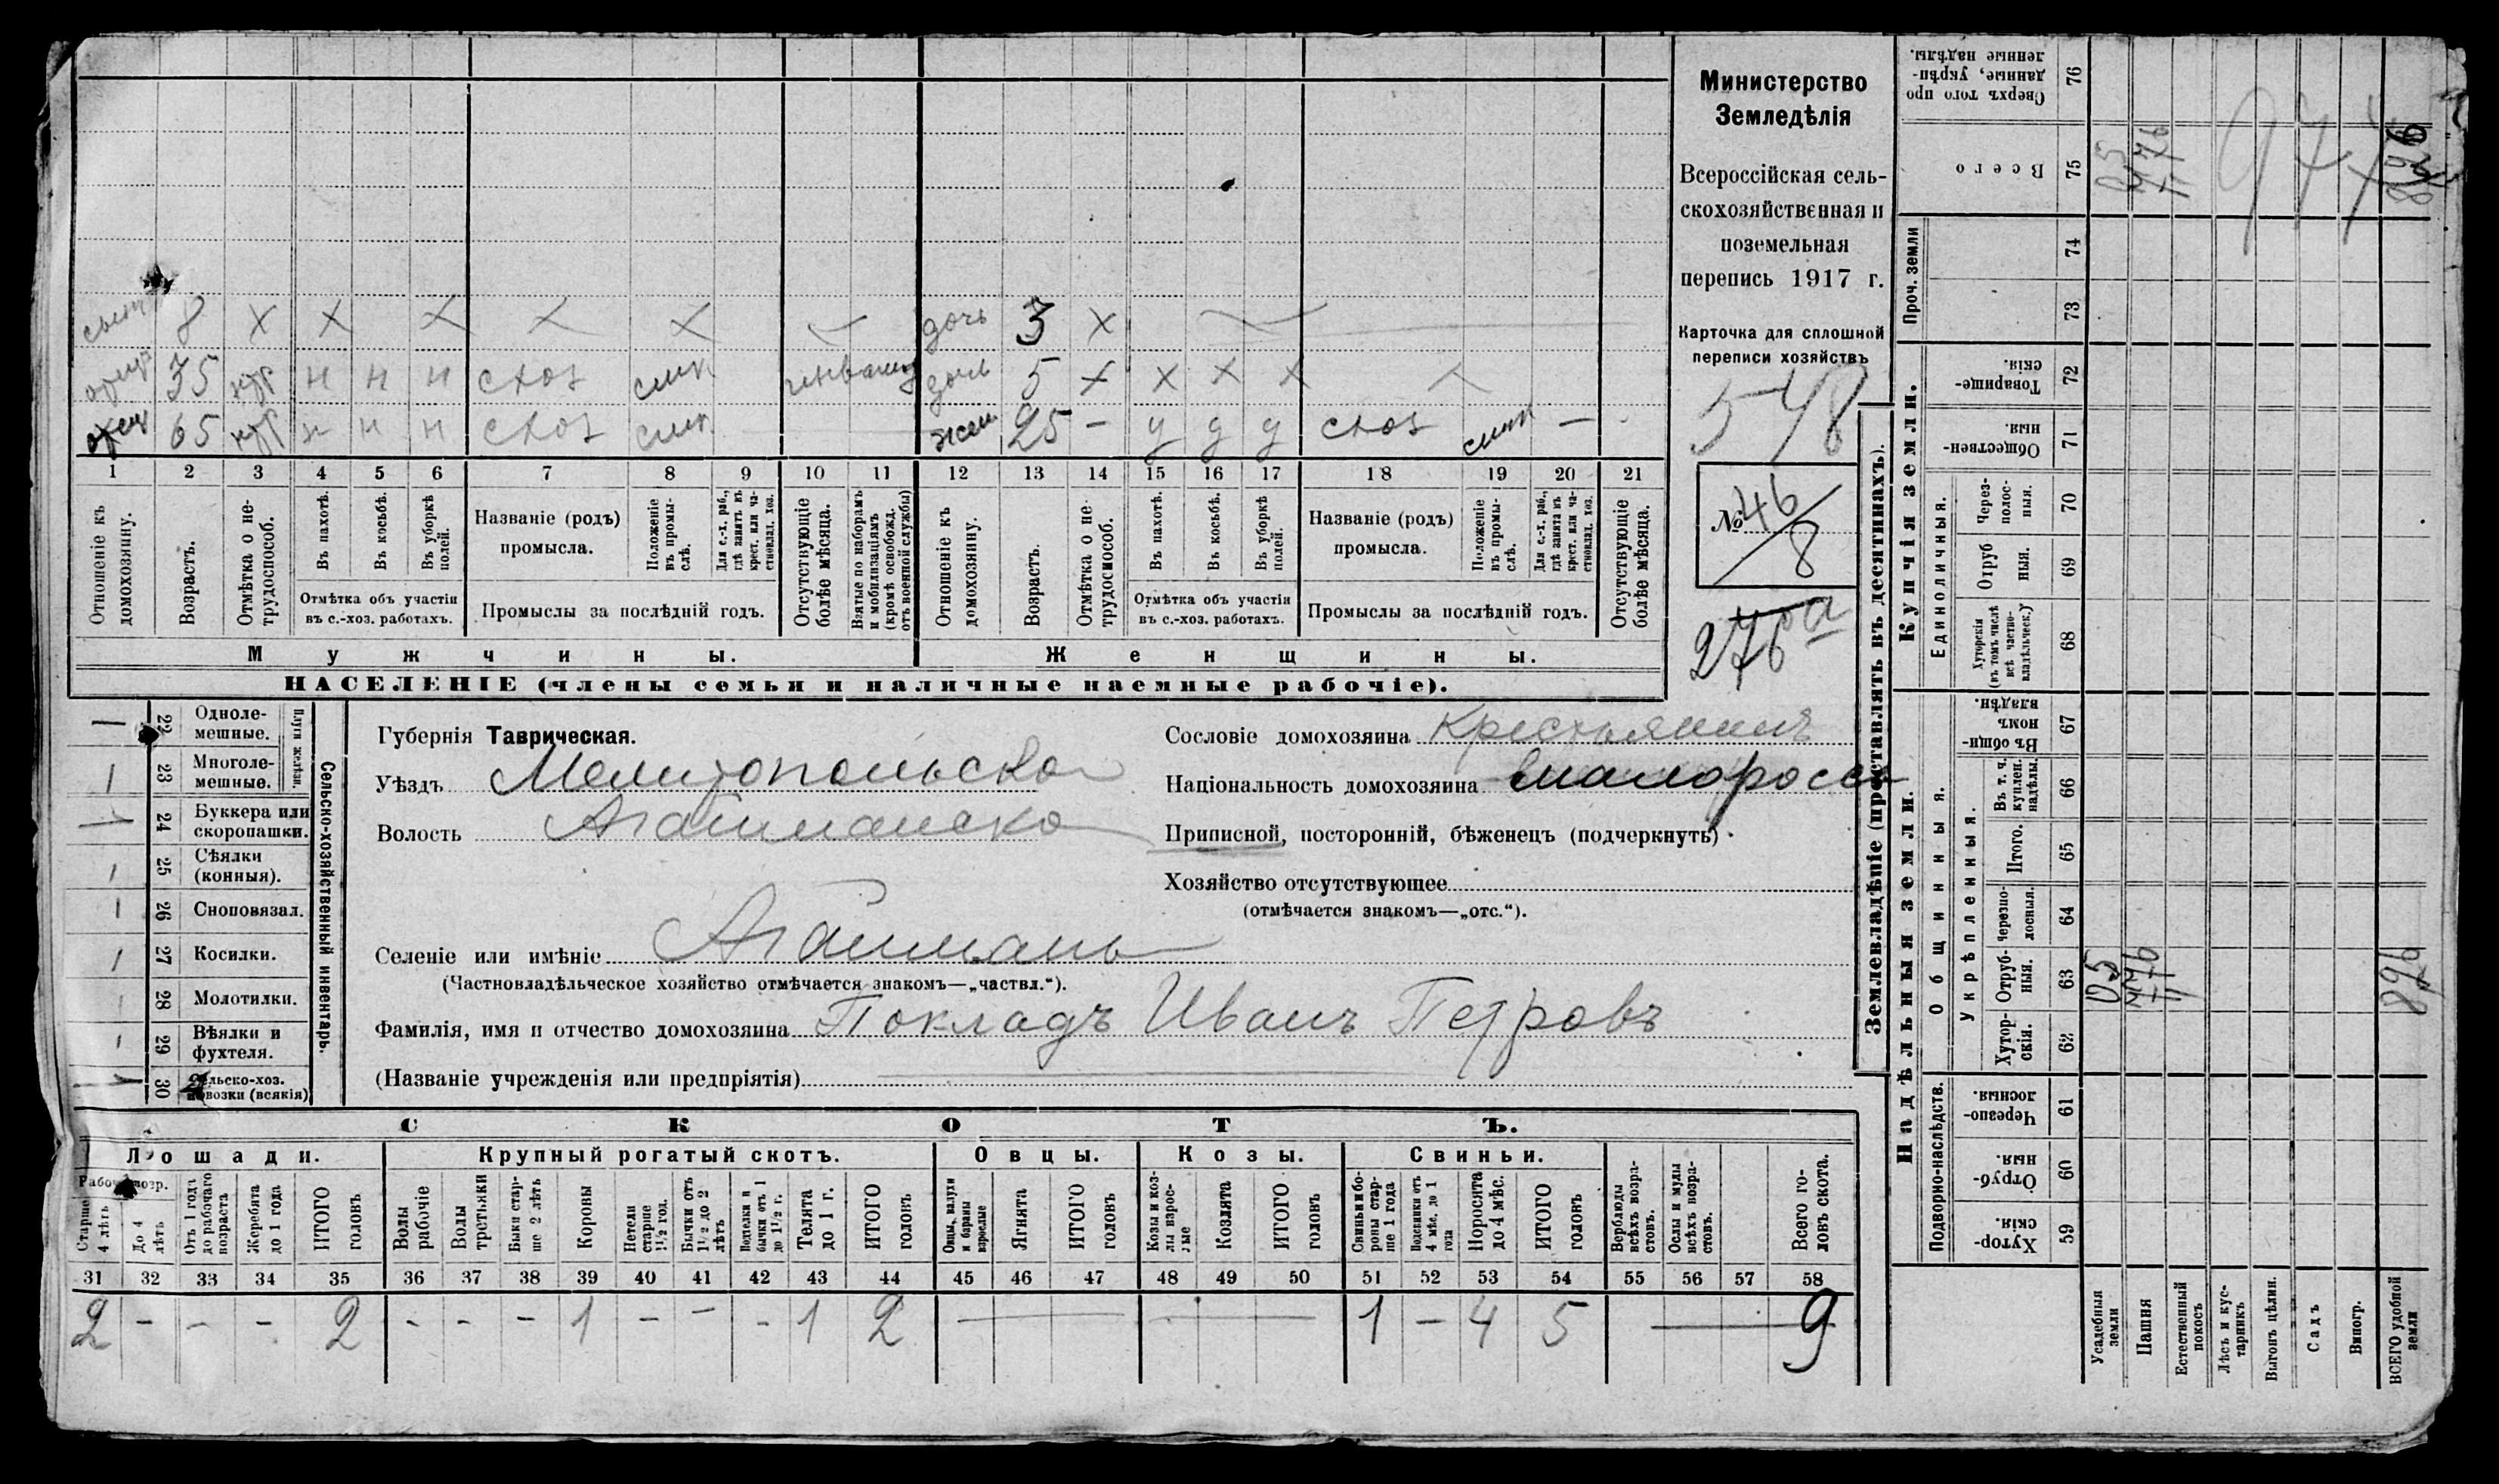 Министерство
Земледѣлія
Всероссійская сель-
скохозяйственная и
поземельная
перепись 1917 г.
Карточка для сплошной
переписи хозяйствъ
548
№ 46/8
сынъ 8 х х х х х дочь 3 х
35 н н н схоз дочь 5 х х х х х
65 н н н схоз жена 25 - у у у схоз -
1 2 3 4 5 6 7 8 9 10 11 12 13 14 15 16 17 18 19 20 21
Отношеніе къ домохозяину.
Возрастъ.
Отмѣтка о не-трудоспособ.
Въ пахотѣ.
Въ косьбѣ.
Въ уборкѣ полей.
Отмѣтка объ участіи
въ с.-хоз. работахъ.
Названіе (родъ)
промысла.
Положеніе въ промы-слѣ.
Для с.-х. раб., гдѣ занятъ въ крест. или ча-стновлад. хоз.
Промыслы за послѣдній годъ.
Отсутствующіе болѣе мѣсяца.
Взятые по наборамъ и мобилизаціямъ (кромѣ освобожд. отъ военной службы)
Отношеніе къ домохозяину.
Возрастъ.
Отмѣтка о не-трудоспособ.
Въ пахотѣ.
Въ косьбѣ.
Въ уборкѣ полей.
Отмѣтка объ участіи
въ с.-хоз. работахъ.
Названіе (родъ)
промысла.
Положеніе въ промы-слѣ.
Для с.-х. раб., гдѣ занята въ крест. или ча-стновлад. хоз.
Промыслы за послѣдній годъ.
Отсутствующіе болѣе мѣсяца.
Мужчины. Женщины.
НАСЕЛЕНІЕ (члены семьи и наличные наемные рабочіе).
Сельско-хозяйственный инвентарь.
Плуги желѣзн.
22 Одноле-мешные.
23 Многоле-мешные.
24 Буккера или скоропашки.
25 Сѣялки (конныя).
26 Сноповязал.
27 Косилки.
28 Молотилки.
29 Вѣялки и фухтеля.
30 Сельско-хоз. повозки (всякія)
Губернія Таврическая.
Уѣздъ Мелитопольско
Волость Агайманско
Селеніе или имѣніе Агайманъ
(Частновладѣльческое хозяйство отмѣчается знакомъ—„частвл.“).
Фамилія, имя и отчество домохозяина Покладъ Иванъ Петровъ
(Названіе учрежденія или предпріятія)
Сословіе домохозяина Крестьянинъ
Національность домохозяина малороссъ
Приписной, посторонній, бѣженецъ (подчеркнуть)
Хозяйство отсутствующее
(отмѣчается знакомъ—„отс.“).
СКОТЪ.
Лошади. Крупный рогатый скотъ. Овцы. Козы. Свиньи.
Рабоч. возр.
Старше 4 лѣтъ
До 4 лѣтъ
Отъ 1 года до рабочаго возраста
Жеребята до 1 года
ИТОГО головъ
Волы рабочіе
Волы третьяки
Быки стар-ше 2 лѣтъ
Коровы
Нетели старше 1½ год.
Бычки отъ 1½ до 2 лѣтъ
Телята до 1 г.
ИТОГО головъ
Овцы, валухи и бараны взрослые
Ягнята
ИТОГО головъ
Козы и коз-лы взрос-лые
Козлята
ИТОГО головъ
Свиньи и бо-ровы стар-ше 1 года
Подсвинки отъ 4 мѣс. до 1 года
Поросята до 4 мѣс.
ИТОГО головъ
Верблюды всѣхъ возра-стовъ.
Ослы и мулы всѣхъ возра-стовъ.
Всего го-ловъ скота.
31 32 33 34 35 36 37 38 39 40 41 42 43 44 45 46 47 48 49 50 51 52 53 54 55 56 57 58
2 - - - 2 - - - 1 - - - 1 2 — — 1 - 4 5 — 9
Землевладѣніе (проставлять въ десятинахъ).
Купчія земли.
Надѣльныя земли.
Сверхъ того про данные, укрѣп-ленные надѣлы. 76
Всего 75
Проч. земли 74 73
Товарище-скія. 72
Обществен-ныя. 71
Единоличныя.
Через-полос-ныя. 70
Отруб ныя. 69
Хуторскія (въ томъ числѣ всѣ частно-владѣльческ.) 68
Общинныя.
Въ общи-номъ владѣн. 67
Укрѣпленныя.
Въ т. ч. куплен. надѣлы. 66
Итого. 65
Черезпо-лосныя. 64
Отруб-ныя. 63
Хутор-скія. 62
Подворно-наслѣдств.
Черезпо-лосныя. 61
Отруб-ныя. 60
Хутор-скія. 59
Усадебныя земли
Пашня
Естественный покосъ
Лѣсъ и кус-тарникъ
Выгонъ цѣлин.
Садъ
Виногр.
ВСЕГО удобной земли